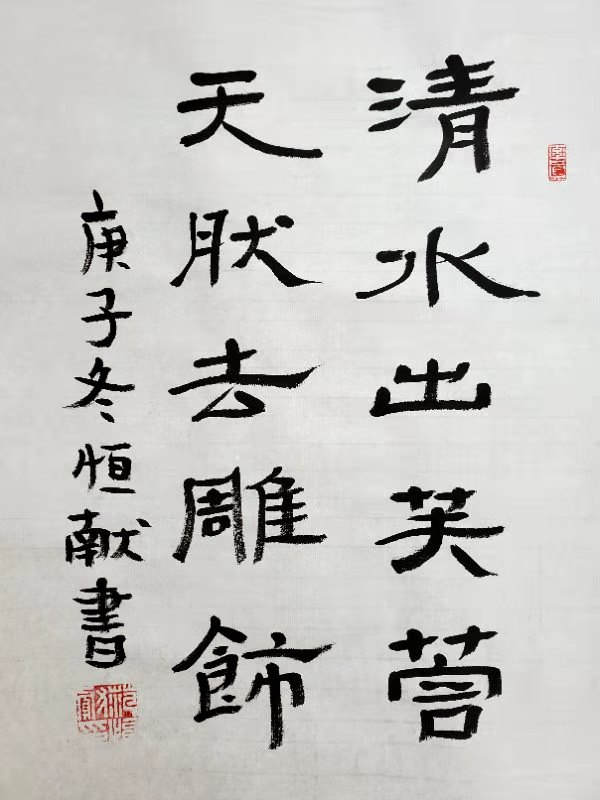 清水出芙蓉
天肰去雕飾
庚子冬恒献書